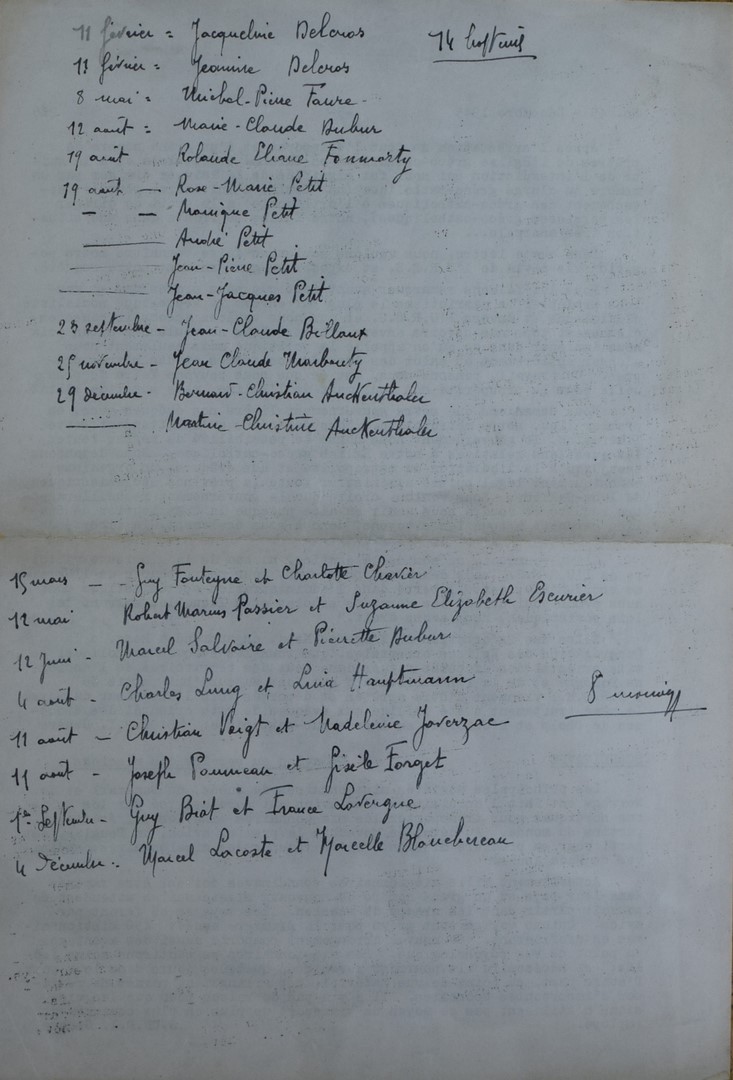 11 février = Jacqueline Delcros
14 baptêmes
11 février = Jeannine Delcros
8 mai = Michel-Pierre Faure -
12 août = Marie-Claude Dubur
19 août Rolande Eliane Fonmarty
19 août — Rose-Marie Petit
— — Monique Petit
—— André Petit
—— Jean-Pierre Petit
—— Jean-Jacques Petit
23 septembre - Jean-Claude Billaux
25 novembre - Jean Claude Marbouty
29 décembre - Bernard-Christian Auckenthaler
—— Martine-Christine Auckenthaler
15 mars — - Guy Fonteyne et Charlotte Chavier
12 mai Robert Marius Passier et Suzanne Elizabeth Escurier
12 Juin - Marcel Salvaire et Pierrette Dubur
4 août - Charles Lung et Livia Hauptmann
8 mariages
11 août — Christian Voigt et Madeleine Joverzac
11 août - Joseph Pommeau et Gisèle Forget
1er Septembre - Guy Biat et France Lavergne
4 Décembre - Marcel Lacoste et Marcelle Blanchereau